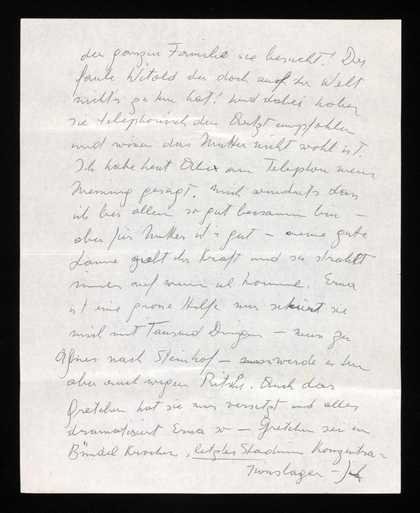 der ganzen Familie sie besucht! Der
faule Witold der doch auf der Welt
nichts zu tun hat! und dabei haben
sie telephonisch den Arzt empfohlen
und wissen dass Mutter nicht wohl ist.
Ich habe heut am Telephon meine
Meinung gesagt. Mich wunderts dass
ich bei allem so gut beisamm bin –
aber für Mutter ist's gut – meine gute
Laune gibt ihr Kraft und sie strahlt
immer auf wenn ich komme. Erna
ist eine grosse Hilfe nur sekiert sie
mich mit Tausend Dingen – muss zu
Agnes nach Steinhof – werde es tun
aber auch wegen Pritzi. Auch das
Gretchen hat sie nur versetzt und alles
dramatisiert Erna so – Gretchen sei ein
Bündel Knochen, letztes Stadium Konzentra-
tionslager –